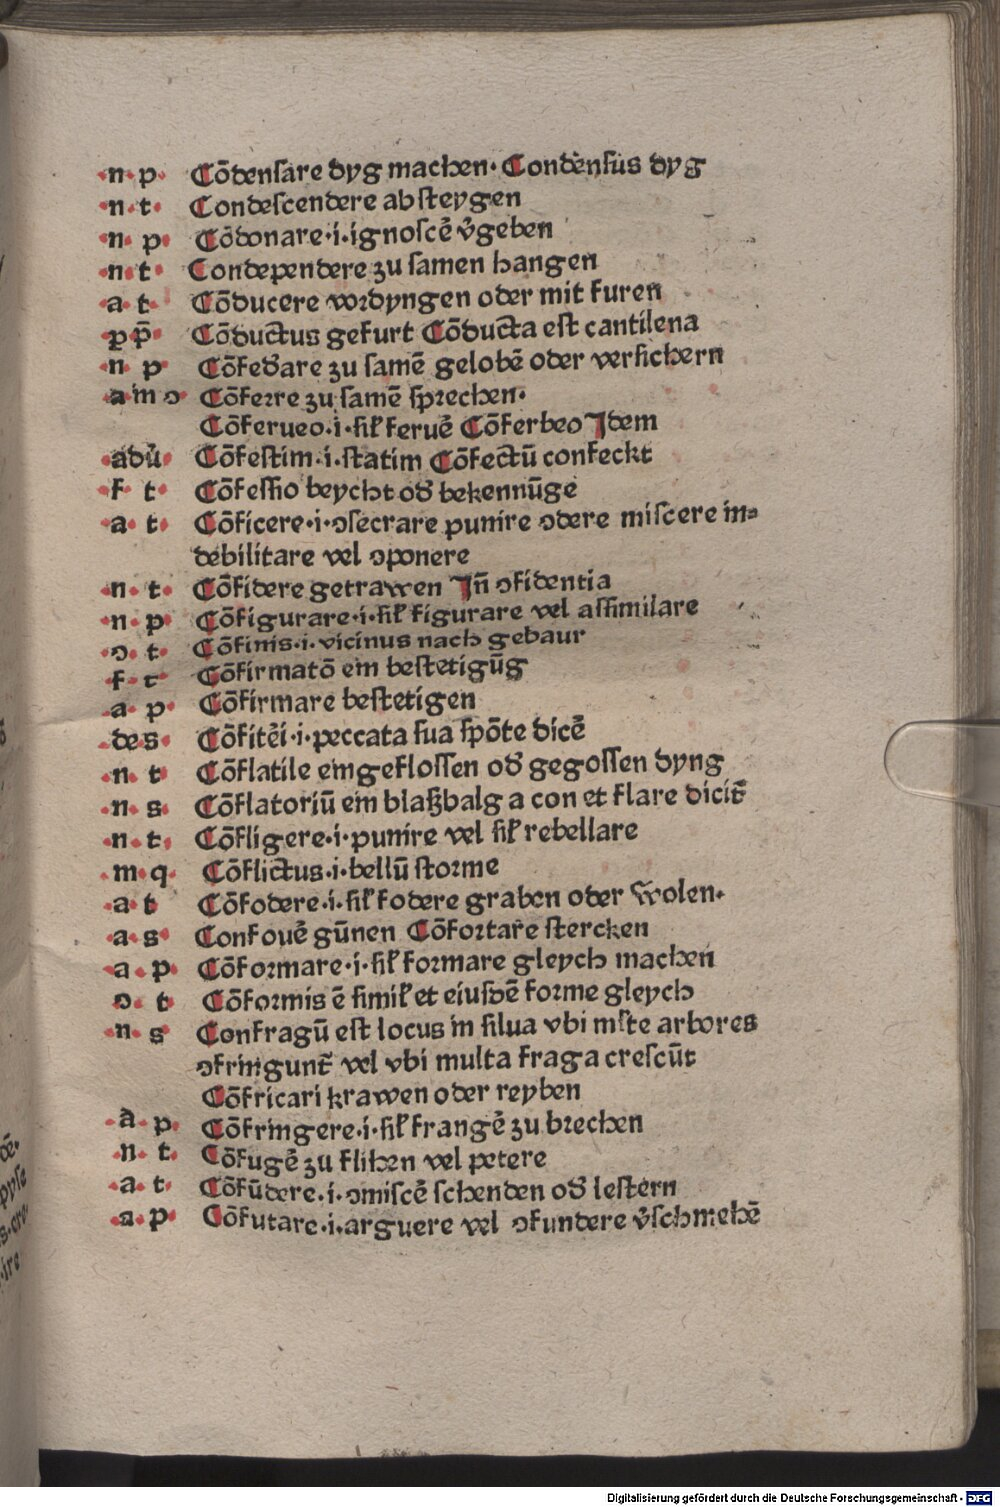 n p Cōdensare dyg machen· Condensus dyg
n t· Condescendere absteygen
n p· Cōdonare·i·ignoscē v̄geben
n t· Condependere zu samen hangen
a t· Cōducere vordyngen oder mit furen
p p̄· Cōductus gefurt Cōducta est cantilena
n p· Cōfedāre zu samē gelobē oder versichern
a m ɔ· Cōferre zu samē sprechen·
Cōferueo·i·sil̕ feruē Cōferbeo Idem
adū· Cōfestim·i·statim Cōfectū confeckt
f t· Cōfessio beycht od̕ bekennūge
a t· Cōficere·i·ɔsecrare punire ɔdere miscere in⸗
debilitare vel ɔponere
n t· Cōfidere getrawen In̄ ɔfidentia
n p· Cōfigurare·i·sil̕ figurare vel assimilare
ɔ t· Cōfinis·i·vicinus nach gebaur
f t Cōfirmatō ein bestetigūg
a p· Cōfirmare bestetigen
de s· Cōfitēi·i·peccata sua spōte dicē
n t Cōflatile eingeflossen od̕ gegossen dyng
n s· Cōflatoriū ein blaßbalg a con et flare dicit̄
n t· Cōfligere·i·punire vel sil̕ rebellare
m q· Cōflictus·i·bellū storme
a t Cōfodere·i·sil̕ fodere graben oder wolen·
a s· Confouē gūnen Cōfortare stercken
a p· Cōformare·i·sil̕ formare gleych machen
ɔ t Cōformis ē simil̕ et eiusdē forme gleych
n s· Confragū est locus in silua vbi mlte arbores
ɔfringunt̄ vel vbi multa fraga crescūt
Cōfricari krawen oder reyben
a p· Cōfringere·i·sil̕ frangē zu brechen
n t· Cōfugē zu flihen vel petere
a t· Cōfūdere·i·ɔmiscē schenden od̕ lestern
a p· Cōfutare·i·arguere vel ɔfundere v̄schmehē
Digitalisierung gefördert durch die Deutsche Forschungsgemeinschaft - DFG